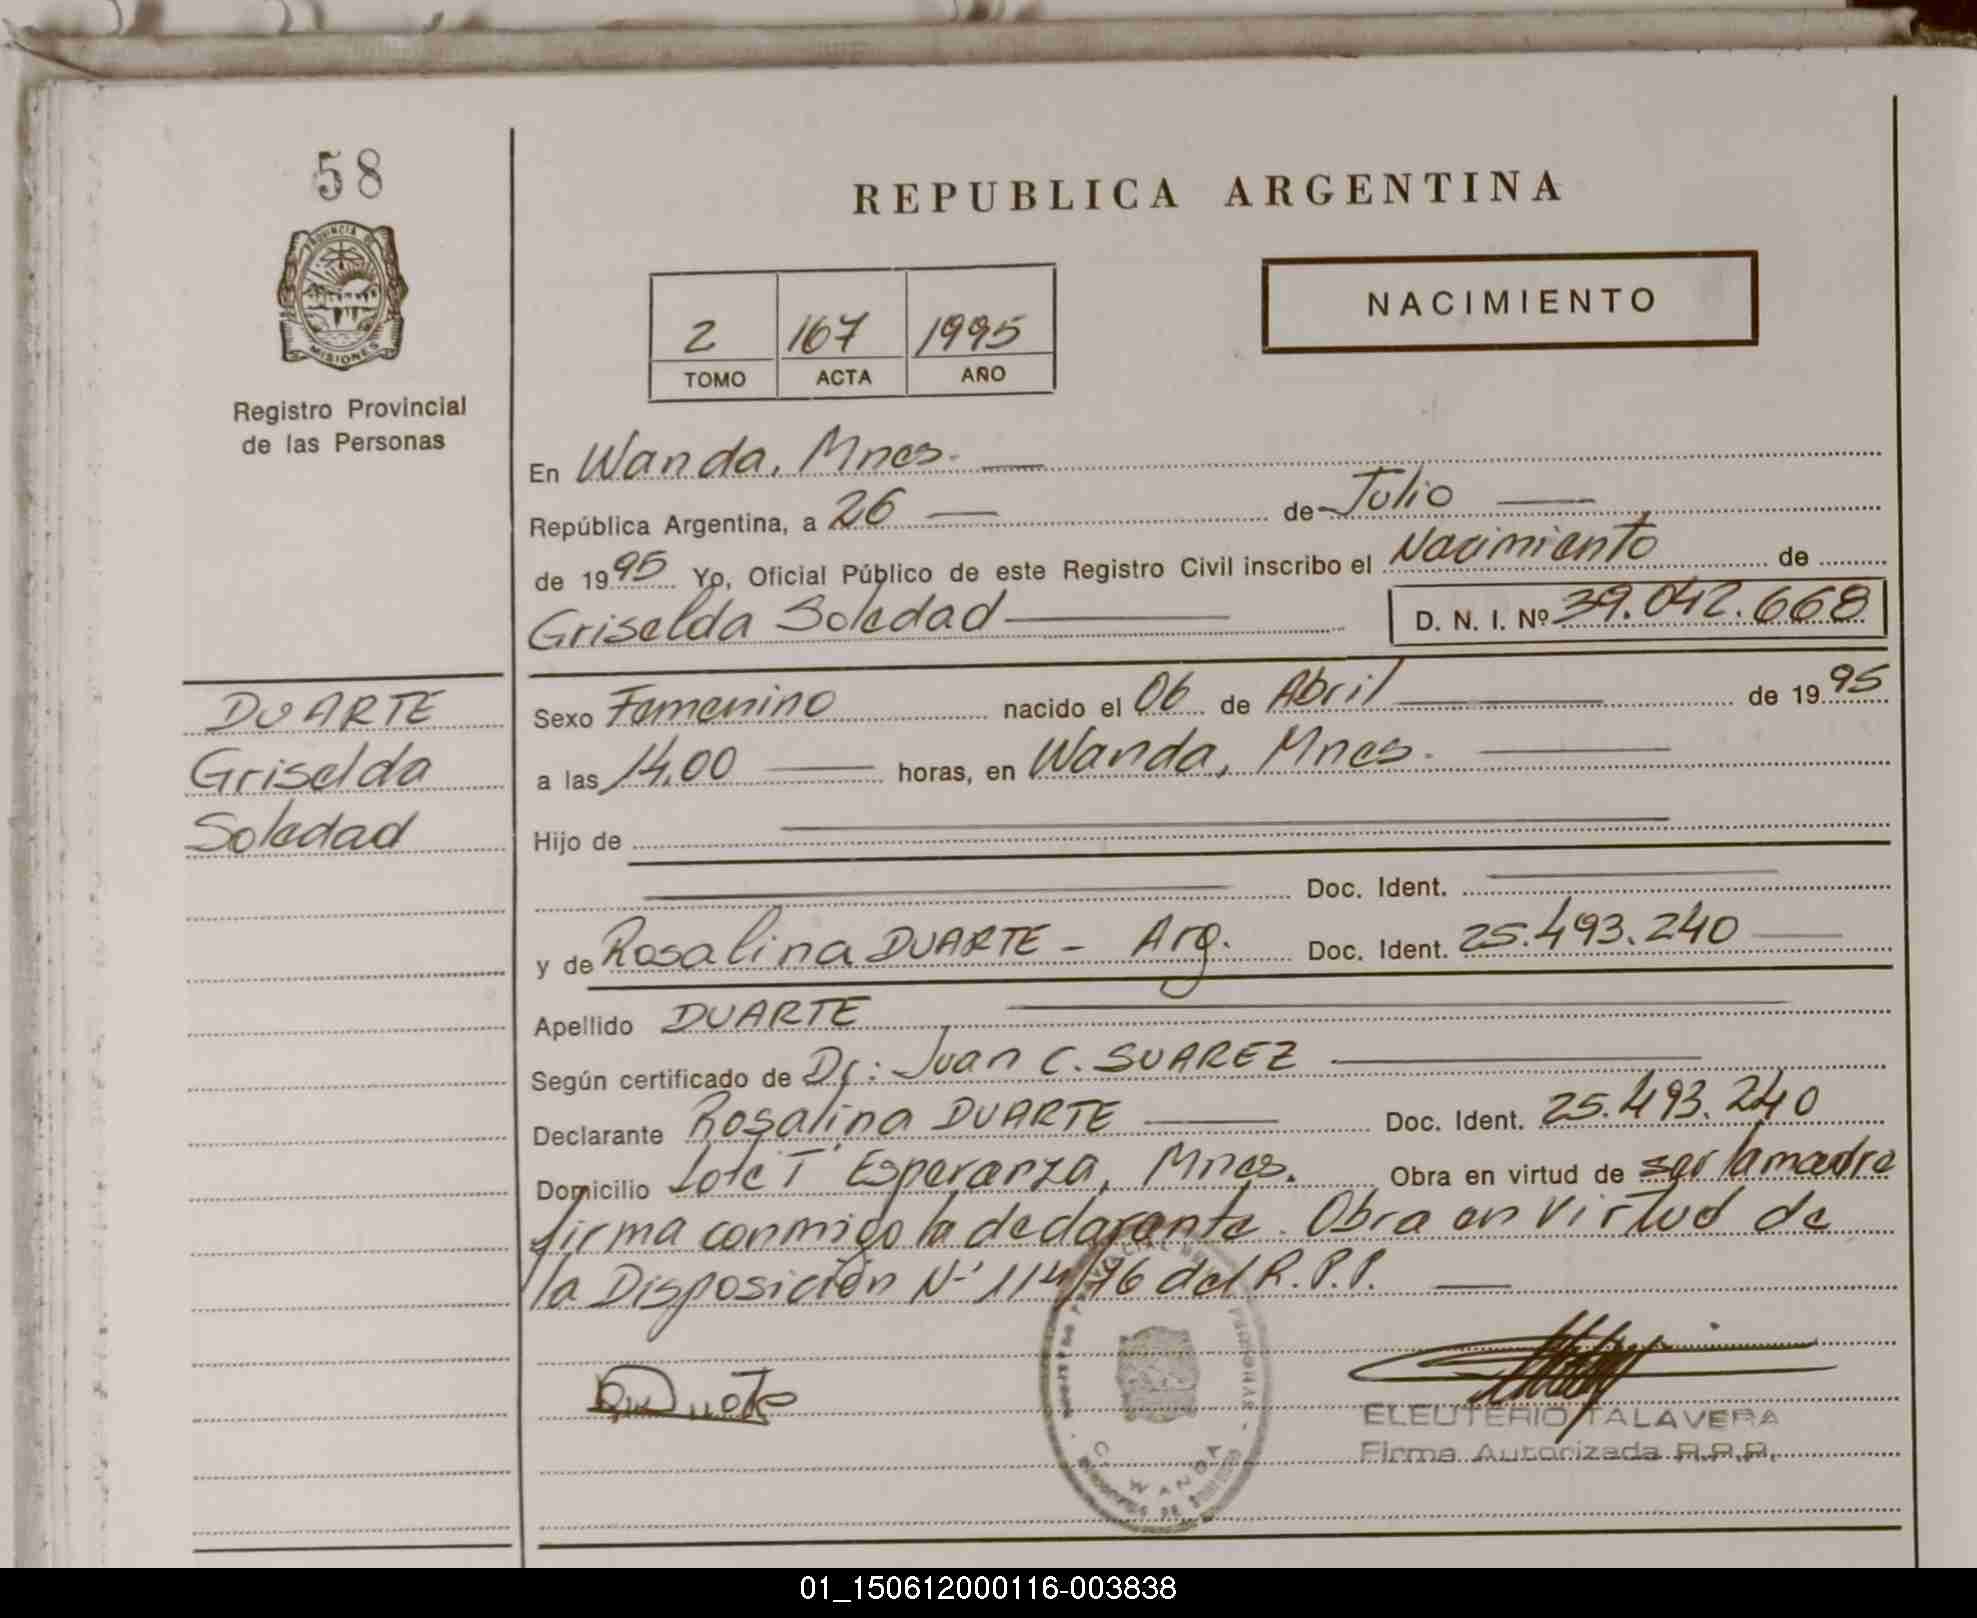 58
REPUBLICA ARGENTINA
PROVINCIA DE
MISIONES
Registro Provincial
de las Personas
2 167 1995
TOMO ACTA AÑO
NACIMIENTO
En Wanda, Mnes.
República Argentina, a 26 de Julio
de 1995 Yo, Oficial Público de este Registro Civil inscribo el Nacimiento de
Griselda Soledad D. N. I. Nº 39.042.668
DUARTE
Griselda
Soledad
Sexo Femenino nacido el 06 de Abril de 1995
a las 14,00 horas, en Wanda, Mnes.
Hijo de
Doc. Ident.
y de Rosalina DUARTE - Arg. Doc. Ident. 25.493.240
Apellido DUARTE
Según certificado de Dr: Juan C. SUAREZ
Declarante Rosalina DUARTE Doc. Ident. 25.493.240
Domicilio Lote 1 Esperanza, Mnes. Obra en virtud de ser la madre
firma conmigo la declarante. Obra en virtud de
la Disposición Nº 114/76 del R.P.P.
WANDA
ELEUTERIO TALAVERA
Firma Autorizada R.P.P.
01_150612000116-003838